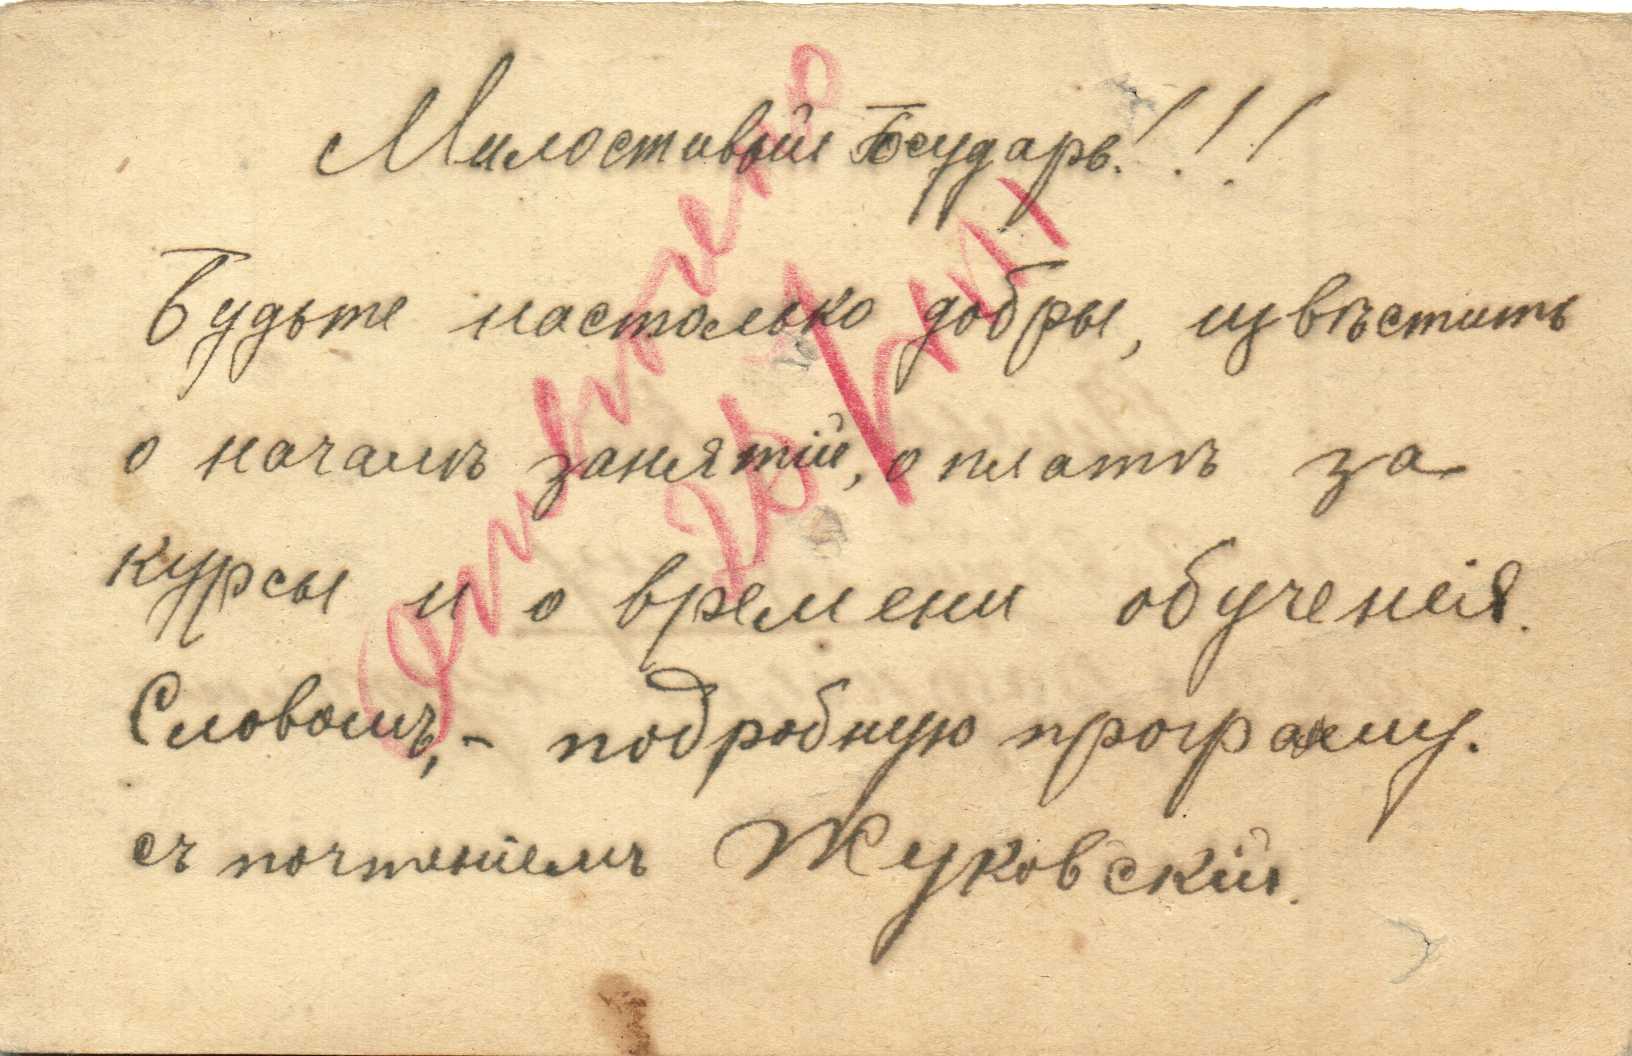 Милостивый Государь!!!
Будьте настолько добры, извѣстить
о началѣ занятій, о платѣ за
курсы и о времени обученія.
Словомъ, – подробную програму.
съ почтеніемъ Жуковскій.
Отвѣчено
26/VIII